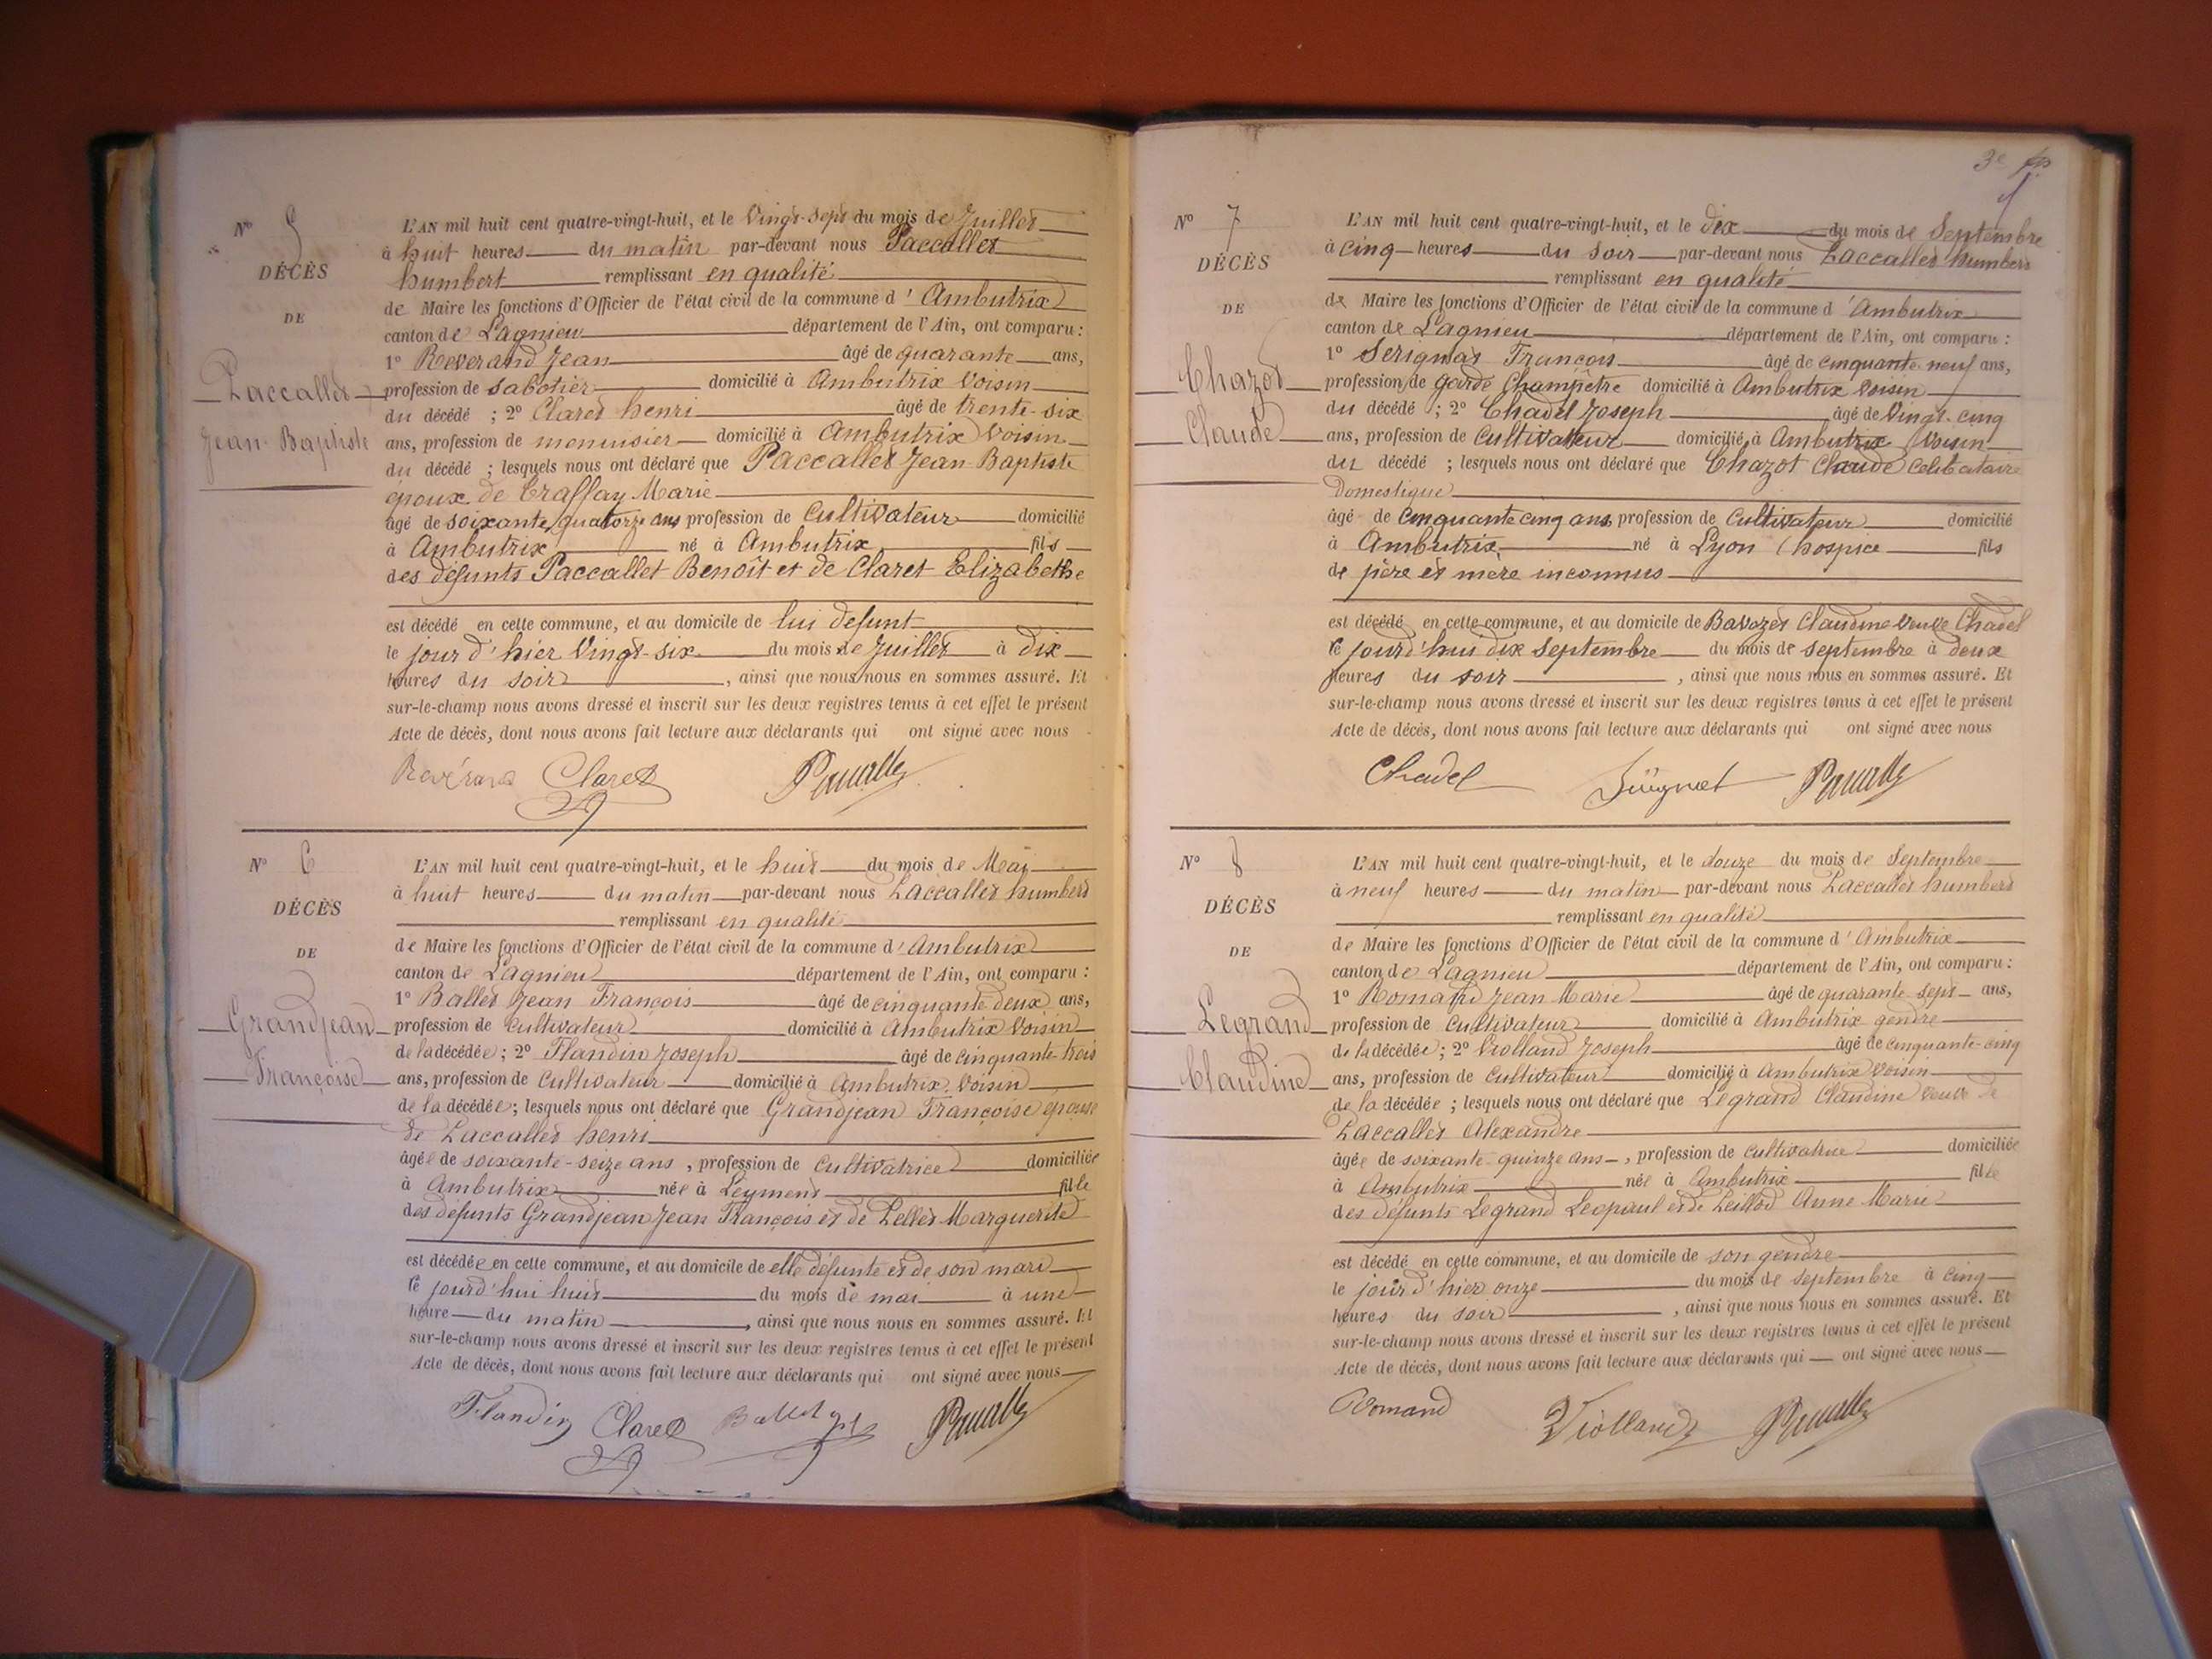 N° 5
DÉCÈS
DE
Paccallet
Jean-Baptiste
L'AN mil huit cent quatre-vingt-huit, et le Vingt-Sept du mois de Juillet
à huit heures du matin par-devant nous Paccallet
humbert remplissant en qualité
de Maire les fonctions d'Officier de l'état civil de la commune d'Ambutrix
canton de Lagnieu département de l'Ain, ont comparu :
1° Reverand Jean âgé de quarante ans,
profession de sabotier domicilié à Ambutrix Voisin
du décédé ; 2° Claret henri âgé de trente-six
ans, profession de menuisier domicilié à Ambutrix Voisin
du décédé ; lesquels nous ont déclaré que Paccallet Jean-Baptiste
époux de Marie
âgé de soixante quatorze ans profession de Cultivateur domicilié
à Ambutrix né à Ambutrix fils
des défunts Paccallet Benoît et de Claret Elizabethe
est décédé en cette commune, et au domicile de lui défunt
le jour d'hier Vingt-six du mois de Juillet à dix
heures du soir , ainsi que nous nous en sommes assuré. Et
sur-le-champ nous avons dressé et inscrit sur les deux registres tenus à cet effet le présent
Acte de décès, dont nous avons fait lecture aux déclarants qui ont signé avec nous
Révérand Claret Paccallet
N° 6
DÉCÈS
DE
Grandjean
Françoise
L'AN mil huit cent quatre-vingt-huit, et le huit du mois de Mai
à huit heures du matin par-devant nous Paccallet humbert
remplissant en qualité
de Maire les fonctions d'Officier de l'état civil de la commune d'Ambutrix
canton de Lagnieu département de l'Ain, ont comparu :
1° Ballet Jean François âgé de cinquante deux ans,
profession de Cultivateur domicilié à Ambutrix Voisin
de la décédée ; 2° Flandin Joseph âgé de cinquante-trois
ans, profession de Cultivateur domicilié à Ambutrix Voisin
de la décédée ; lesquels nous ont déclaré que Grandjean Françoise épouse
de Paccallet henri
âgée de soixante-seize ans , profession de Cultivatrice domiciliée
à Ambutrix née à Leyment fille
des défunts Grandjean Jean François et de Pellet Marguerite
est décédée en cette commune, et au domicile de elle défunte et de son mari
le jourd'hui huit du mois de mai à une
heure du matin , ainsi que nous nous en sommes assuré. Et
sur-le-champ nous avons dressé et inscrit sur les deux registres tenus à cet effet le présent
Acte de décès, dont nous avons fait lecture aux déclarants qui ont signé avec nous
Flandin Claret Ballet Paccallet
3e
N° 7
DÉCÈS
DE
Chazot
Claude
L'AN mil huit cent quatre-vingt-huit, et le dix du mois de Septembre
à cinq heures du soir par-devant nous Paccallet humbert
remplissant en qualité
de Maire les fonctions d'Officier de l'état civil de la commune d'Ambutrix
canton de Lagnieu département de l'Ain, ont comparu :
1° François âgé de cinquante neuf ans,
profession de garde Champêtre domicilié à Ambutrix Voisin
du décédé ; 2° Chadel Joseph âgé de Vingt-cinq
ans, profession de Cultivateur domicilié à Ambutrix Voisin
du décédé ; lesquels nous ont déclaré que Chazot Claude Celibataire
Domestique
âgé de Cinquante cinq ans, profession de Cultivateur domicilié
à Ambutrix né à Lyon (hospice fils
de père et mère inconnus
est décédé en cette commune, et au domicile de Bavozet Claudine veuve Chadel
le jourd'hui dix Septembre du mois de septembre à deux
heures du soir , ainsi que nous nous en sommes assuré. Et
sur-le-champ nous avons dressé et inscrit sur les deux registres tenus à cet effet le présent
Acte de décès, dont nous avons fait lecture aux déclarants qui ont signé avec nous
Chadel Paccallet
N° 8
DÉCÈS
DE
Legrand
Claudine
L'AN mil huit cent quatre-vingt-huit, et le douze du mois de Septembre
à neuf heures du matin par-devant nous Paccallet humbert
remplissant en qualité
de Maire les fonctions d'Officier de l'état civil de la commune d'Ambutrix
canton de Lagnieu département de l'Ain, ont comparu :
1° Romand Jean Marie âgé de quarante-sept ans,
profession de Cultivateur domicilié à Ambutrix gendre
de la décédée ; 2° Violland Joseph âgé de cinquante-cinq
ans, profession de Cultivateur domicilié à Ambutrix Voisin
de la décédée ; lesquels nous ont déclaré que Legrand Claudine Veuve de
Paccallet Alexandre
âgée de soixante quinze ans , profession de cultivatrice domiciliée
à Ambutrix née à Ambutrix fille
des défunts Legrand et de Anne Marie
est décédé en cette commune, et au domicile de son gendre
le jour d'hier onze du mois de septembre à cinq
heures du soir , ainsi que nous nous en sommes assuré. Et
sur-le-champ nous avons dressé et inscrit sur les deux registres tenus à cet effet le présent
Acte de décès, dont nous avons fait lecture aux déclarants qui ont signé avec nous
Romand Violland Paccallet